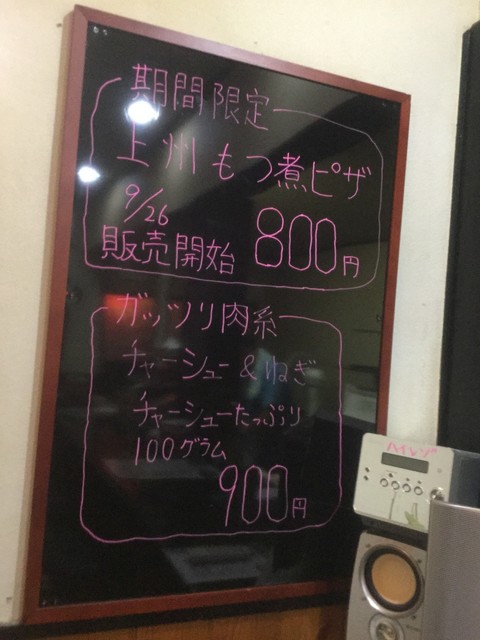 期間限定
上州もつ煮ピザ
9/26
販売開始 800円
ガッツリ肉系
チャーシュー&ねぎ
チャーシューたっぷり
100グラム
900円